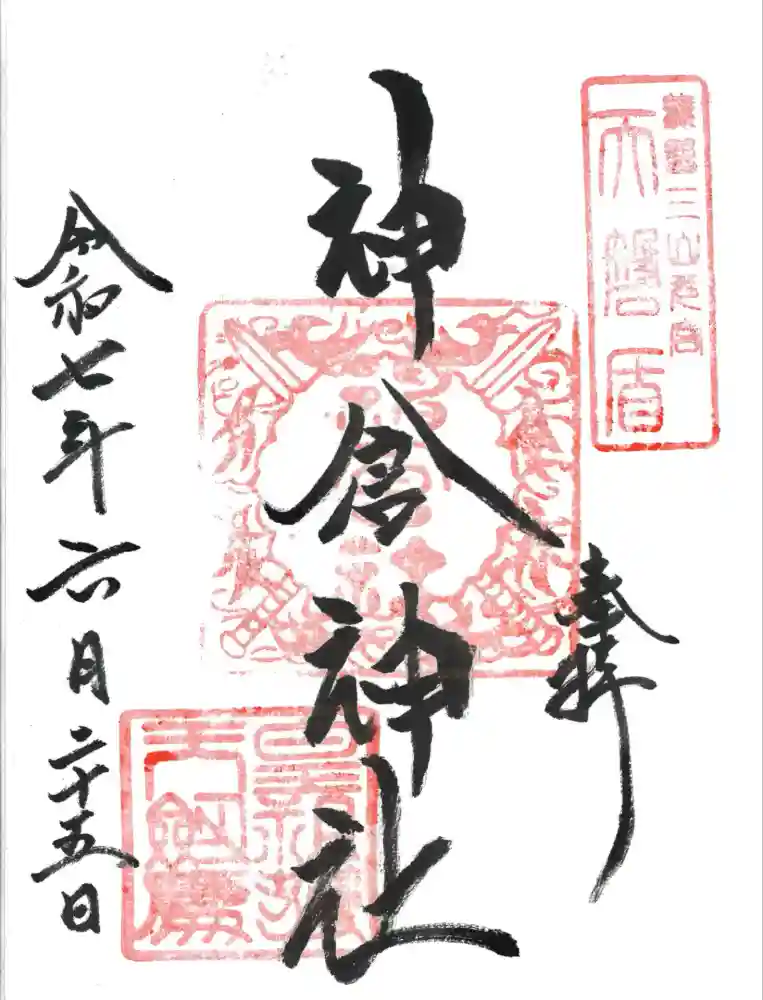 熊野三山元宮
天磐盾
奉拝
神倉神社
令和七年六月二十五日